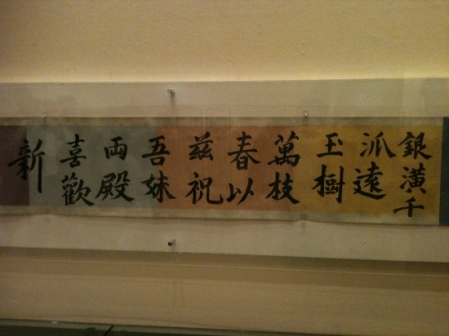 銀潢千
派遠
玉樹
萬枝
春以
茲祝
吾妹
両殿
喜歡
新